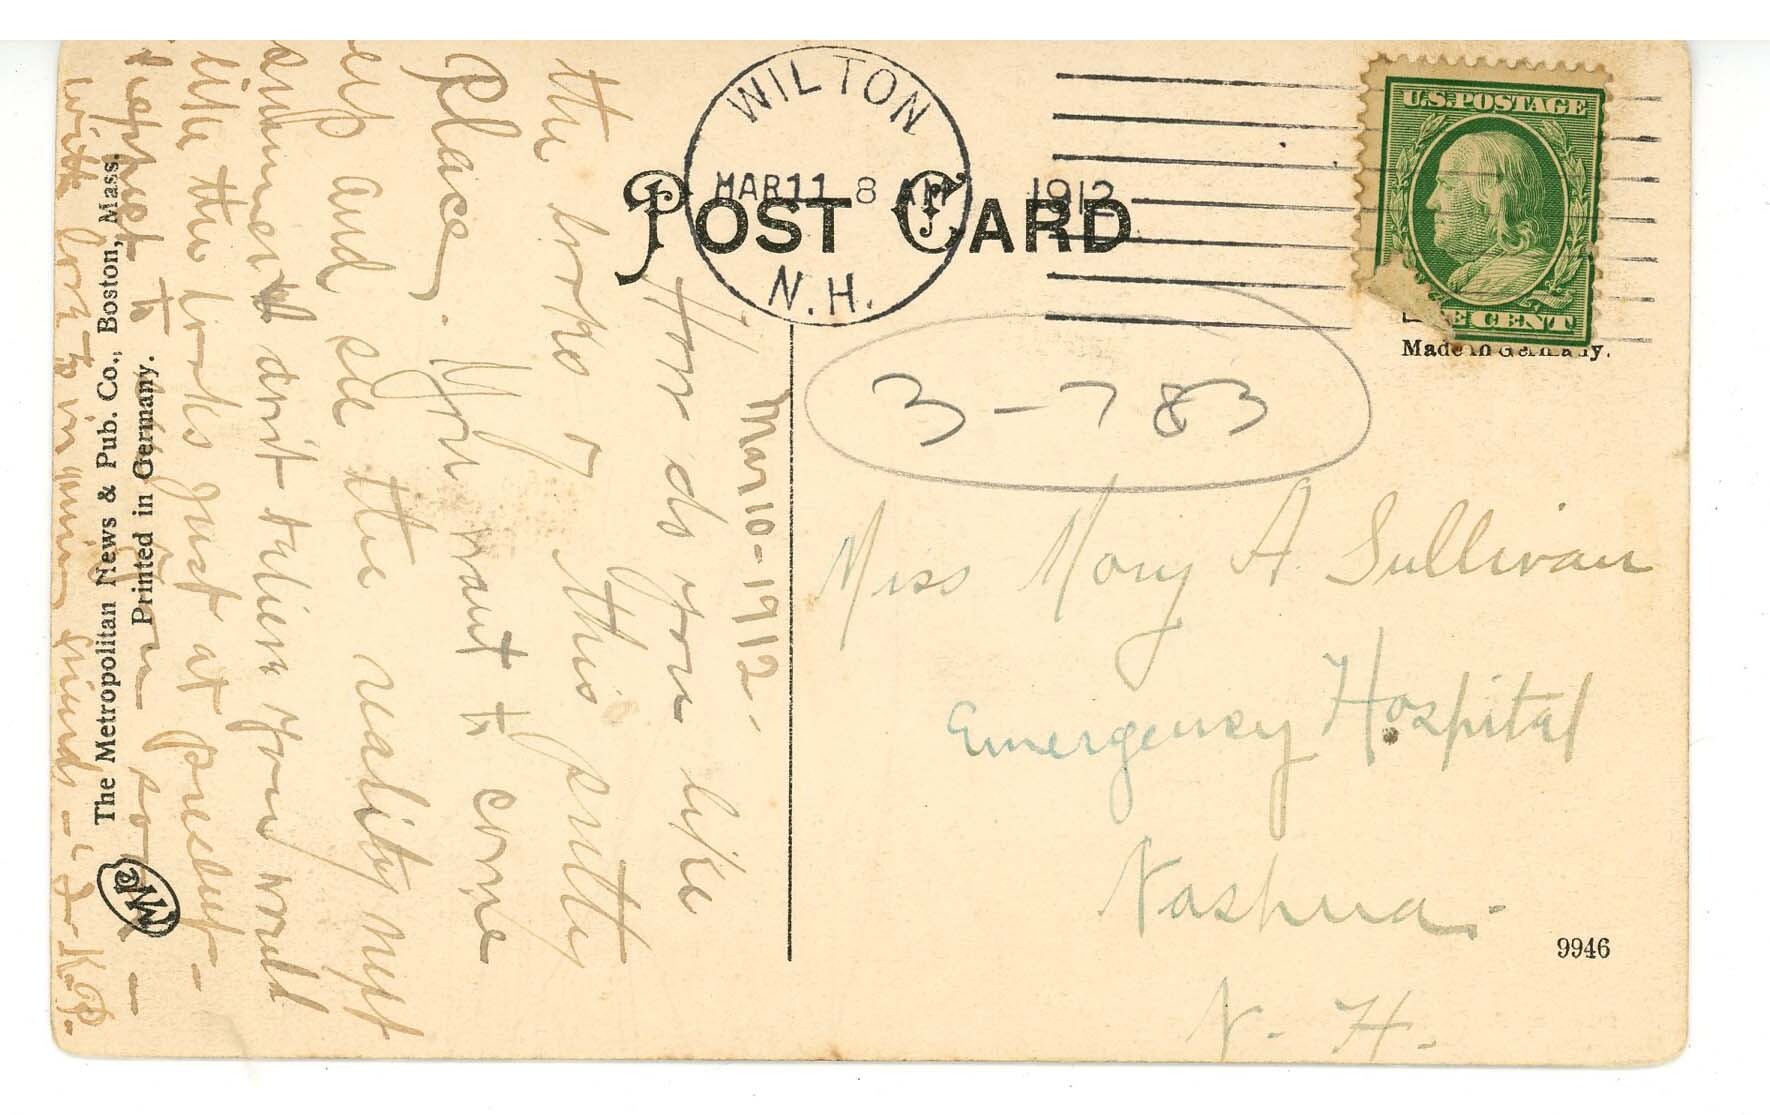 WILTON
MAR 11 8 AM 1912
N.H.
POST CARD
U.S. POSTAGE
E CENT
Made in Germany.
3-783
Miss Mary A Sullivan
Emergency Hospital
Nashua.
N. H.
9946
Mar 10-1912-
How do you like
the looks of this pretty
place. You want to come
up and see the reality next
summer I don't believe you would
like the looks just at present-
with love to
friends - J. K. P.
The Metropolitan News & Pub. Co., Boston, Mass.
Printed in Germany.